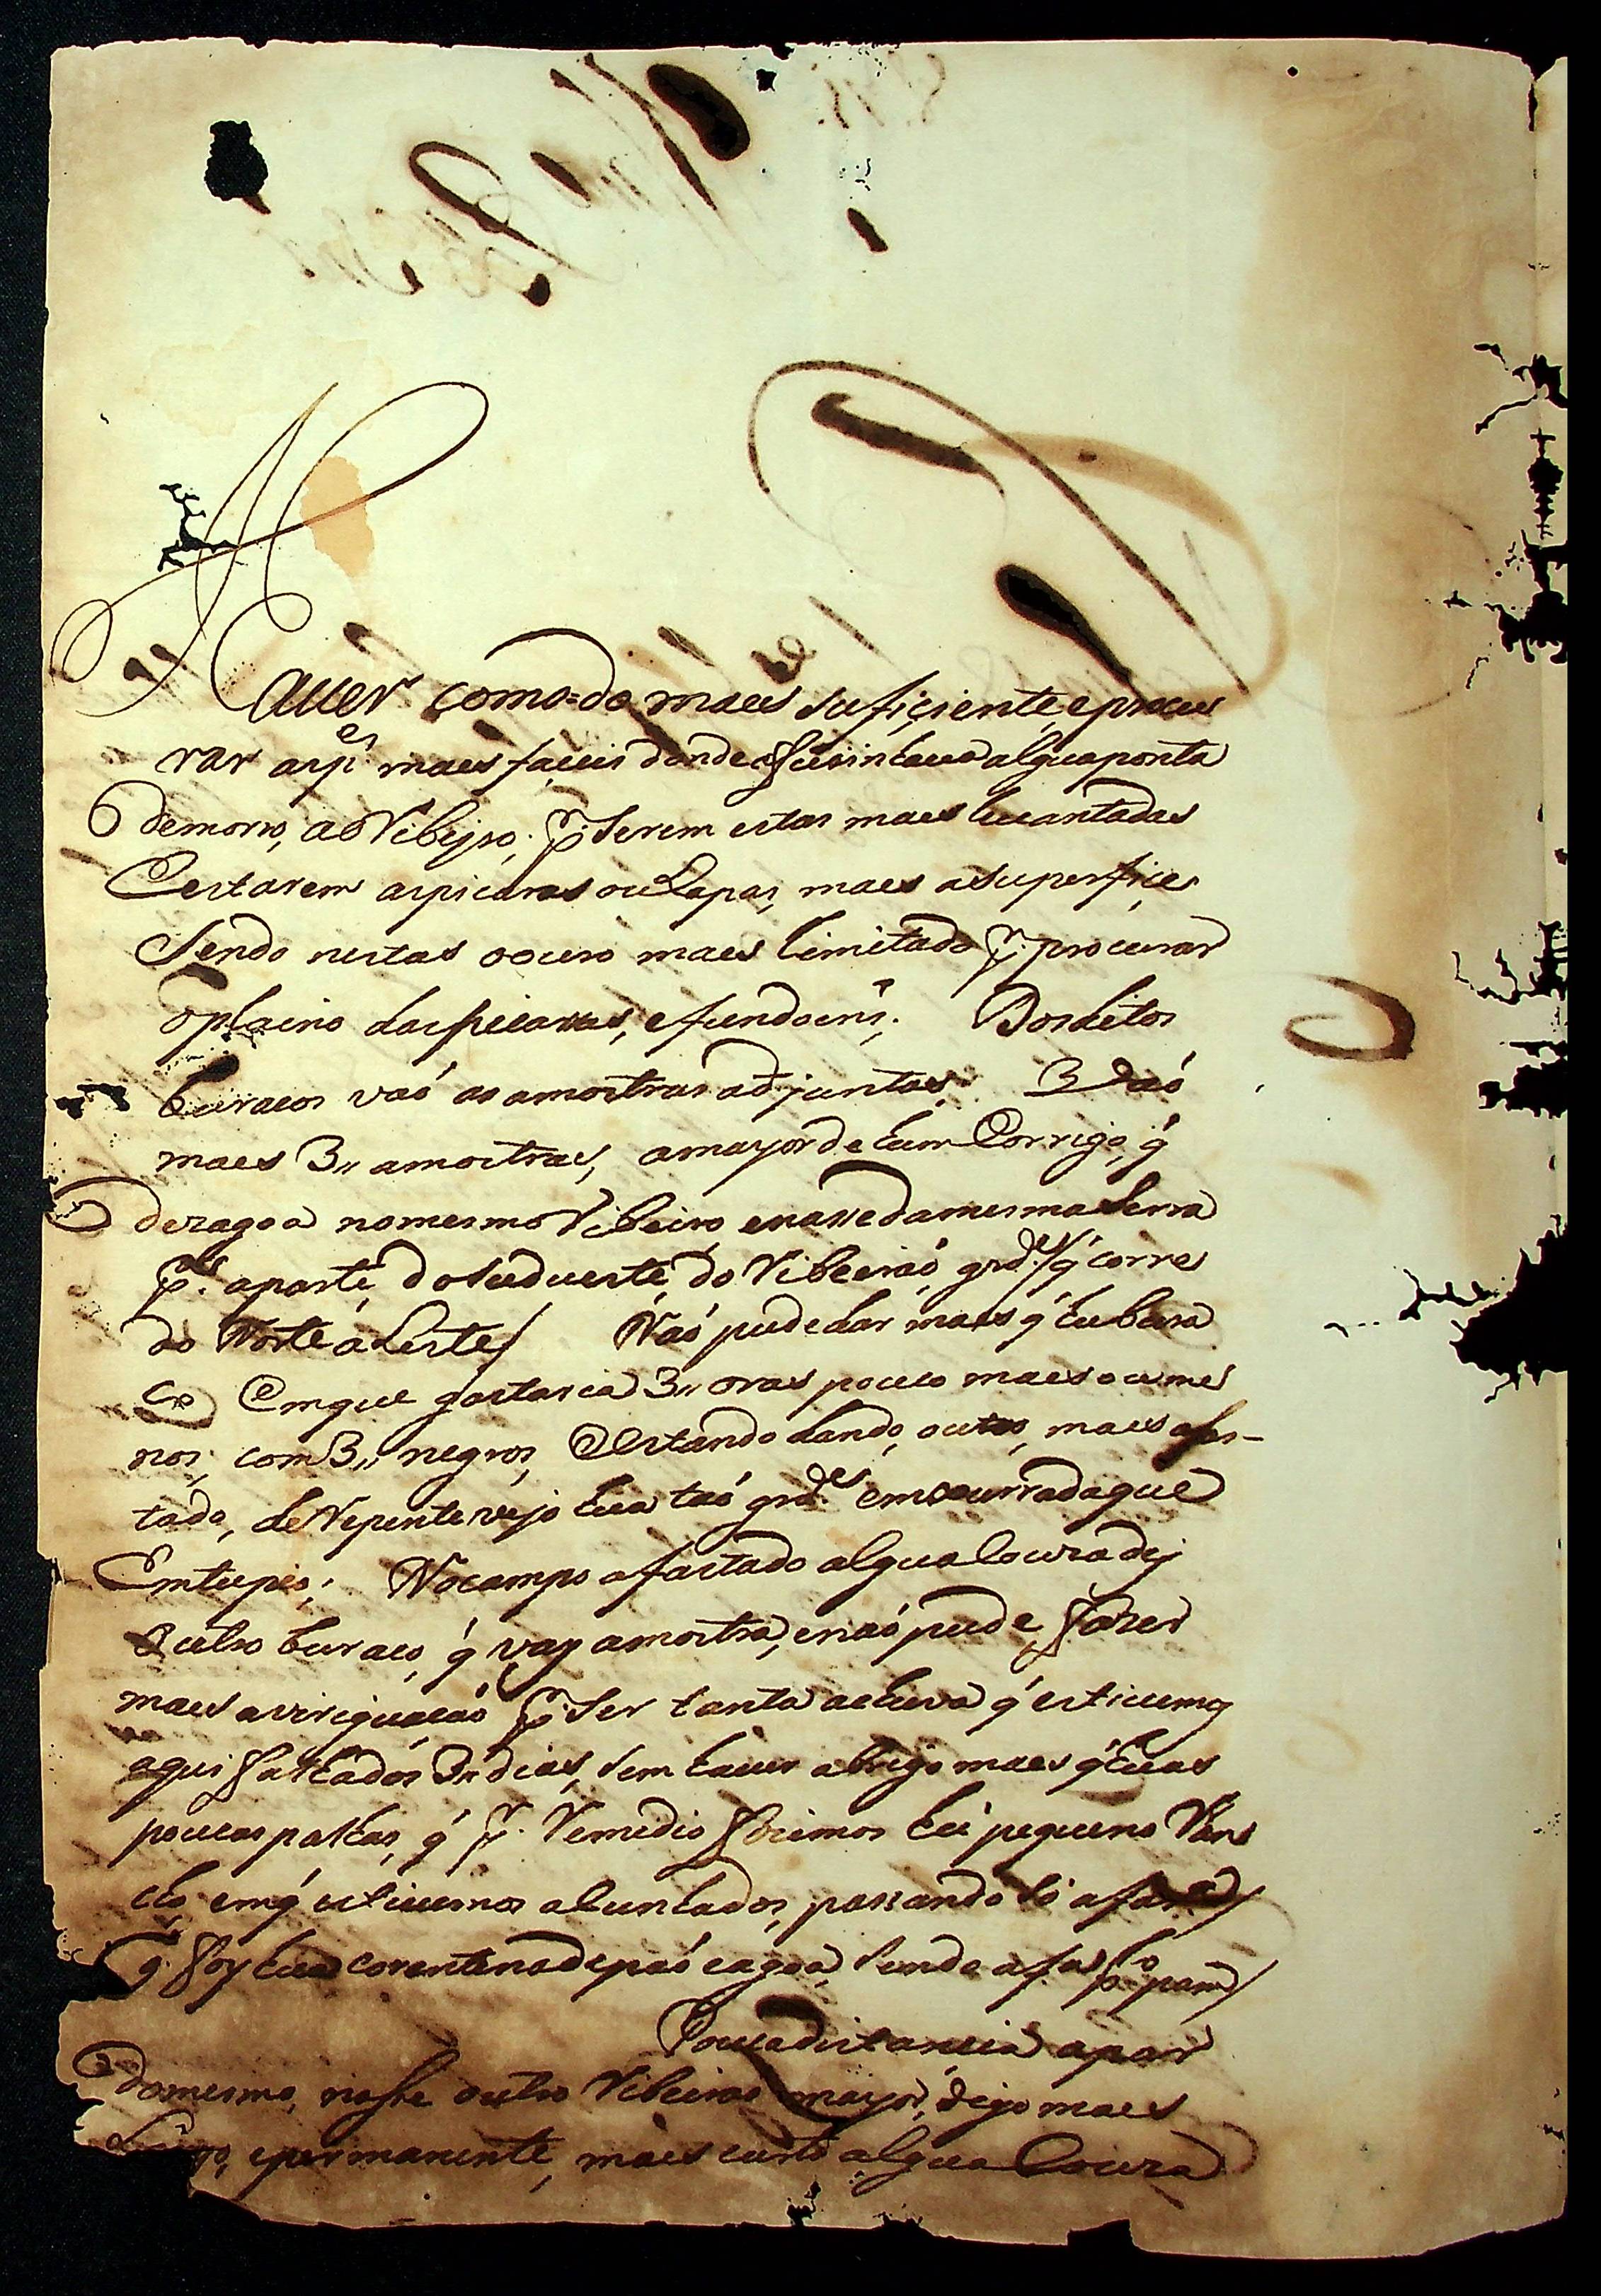 Auer comodo maes sufiçiente, eprocu
rar asp.es maes façeis donde fuçintaua algua ponta
demorro, ao Ribejro, p. serem estas maes leuantadas
Eestarem aspicaras ou Lapas, maes asuperfiçie
Sendo nestas oouro maes limitado p. procurar
oplaino daspicarras, efundoens. Dosditos
buracos vaó as amostras adjuntas. E vaó
maes 3,, amostras, amayor de hum Corrigo, q
dezagoa nomesmo Ribeiro, enasse damesma Serra
p.a aparte, do suduerte, do Ribeiraó grd.e/ q corre
do Norte a Leste/ Naó pude dar maes q hu bura
co Emque gastaria 3,, oras pouco maes ou me
nos, com 3,, negros, Eestando dando, outro, maes afas-
tado, de Repente vejo hua taó grd.e emxurrada que
Emtupio; No campo afastado algua Couza dej
outro buraco, q vay amostra, enaó pude, fazer
maes aviriguacaó p. ser tanta achuva q estiuemos
aqui falhados 3,, dias, sem hauer abrigo maes q huas
poucas palhas, q p. Remedio fizemos hú pequeno Ran
cho, emq estiuemos aluntados, passando só a far.a/
q foy hua corentena depaó eagoa, sendo a fa p.o pam/
Pouca distancia apar
domesmo, nasse outro Ribeirao mayor, digo maes
Largo, epermanente, maes curto algua Couza